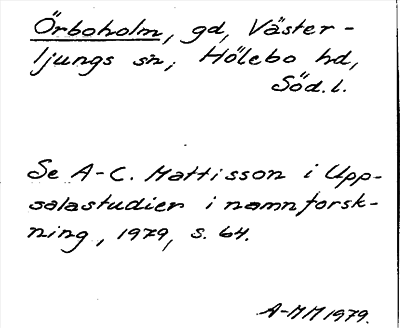 Örboholm, gd, Väster-
ljungs sn, Hölebo hd,
Söd. l.
Se A-C. Mattisson i Upp-
salastudier i namnforsk-
ning, 1979, s. 64.
A-MM 1979.